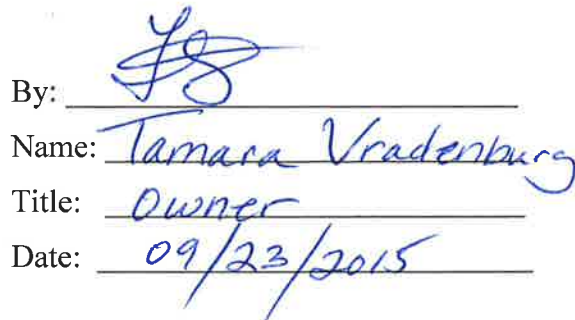 By:
Name: Tamara Vradenburg
Title: Owner
Date: 09/23/2015